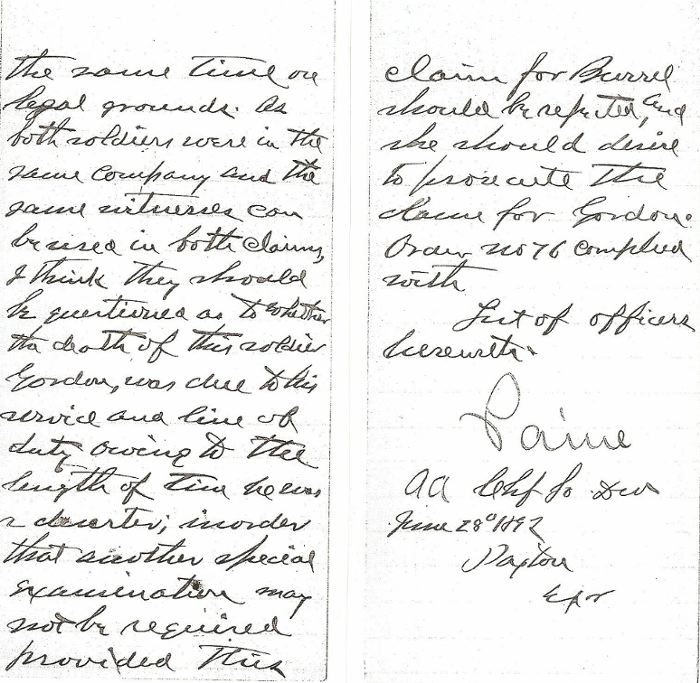 the same time on
legal grounds. As
both soldiers were in the
same company and the
same witnesses can
be used in both claims,
I think they should
be questioned as to whether
the death of this soldier
Gordon, was due to his
service and line of
duty owing to the
length of time he was
a deserter; in order
that another special
examination may
not be required
provided this
claim for Burrel
should be rejected, and
she should desire
to prosecute the
claim for Gordon.
Order no 76 complied
with
List of officers
herewith.
Paine
June 28" 1892
Paxton
Exr